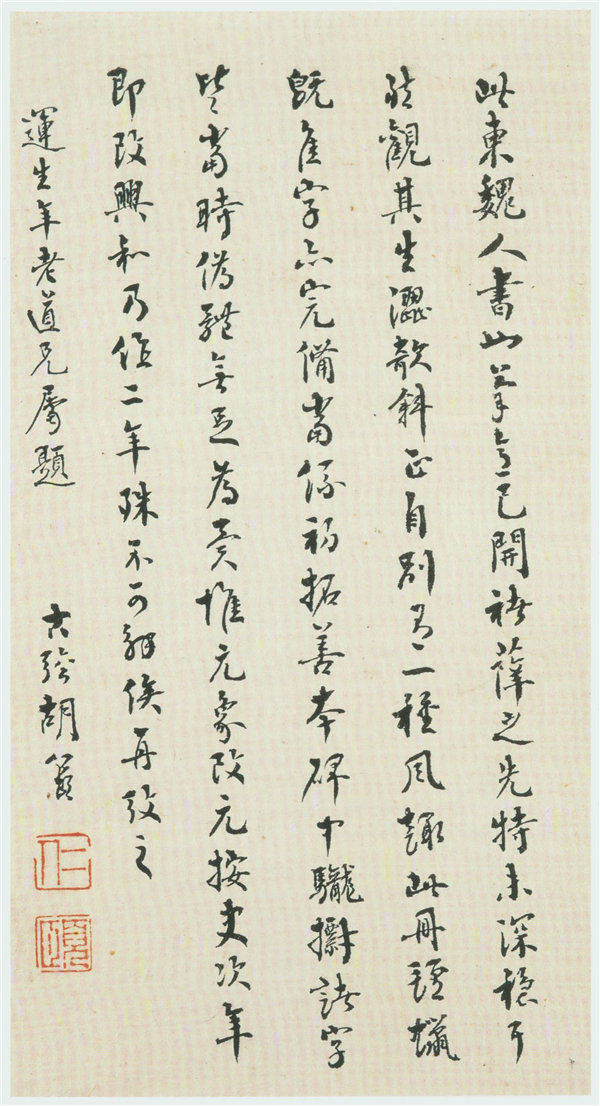 此東魏人書也筆意已開褚薛之先特未深穩耳
然觀其生澀欹斜正自別有一種風趣此冊氈蠟
既佳字亦完備當係初拓善本碑中諸字
皆當時僞體無足爲異惟元象改元按史次年
即改興和乃作二年殊不可解俟再攷之
運生年老道兄屬題
古胡